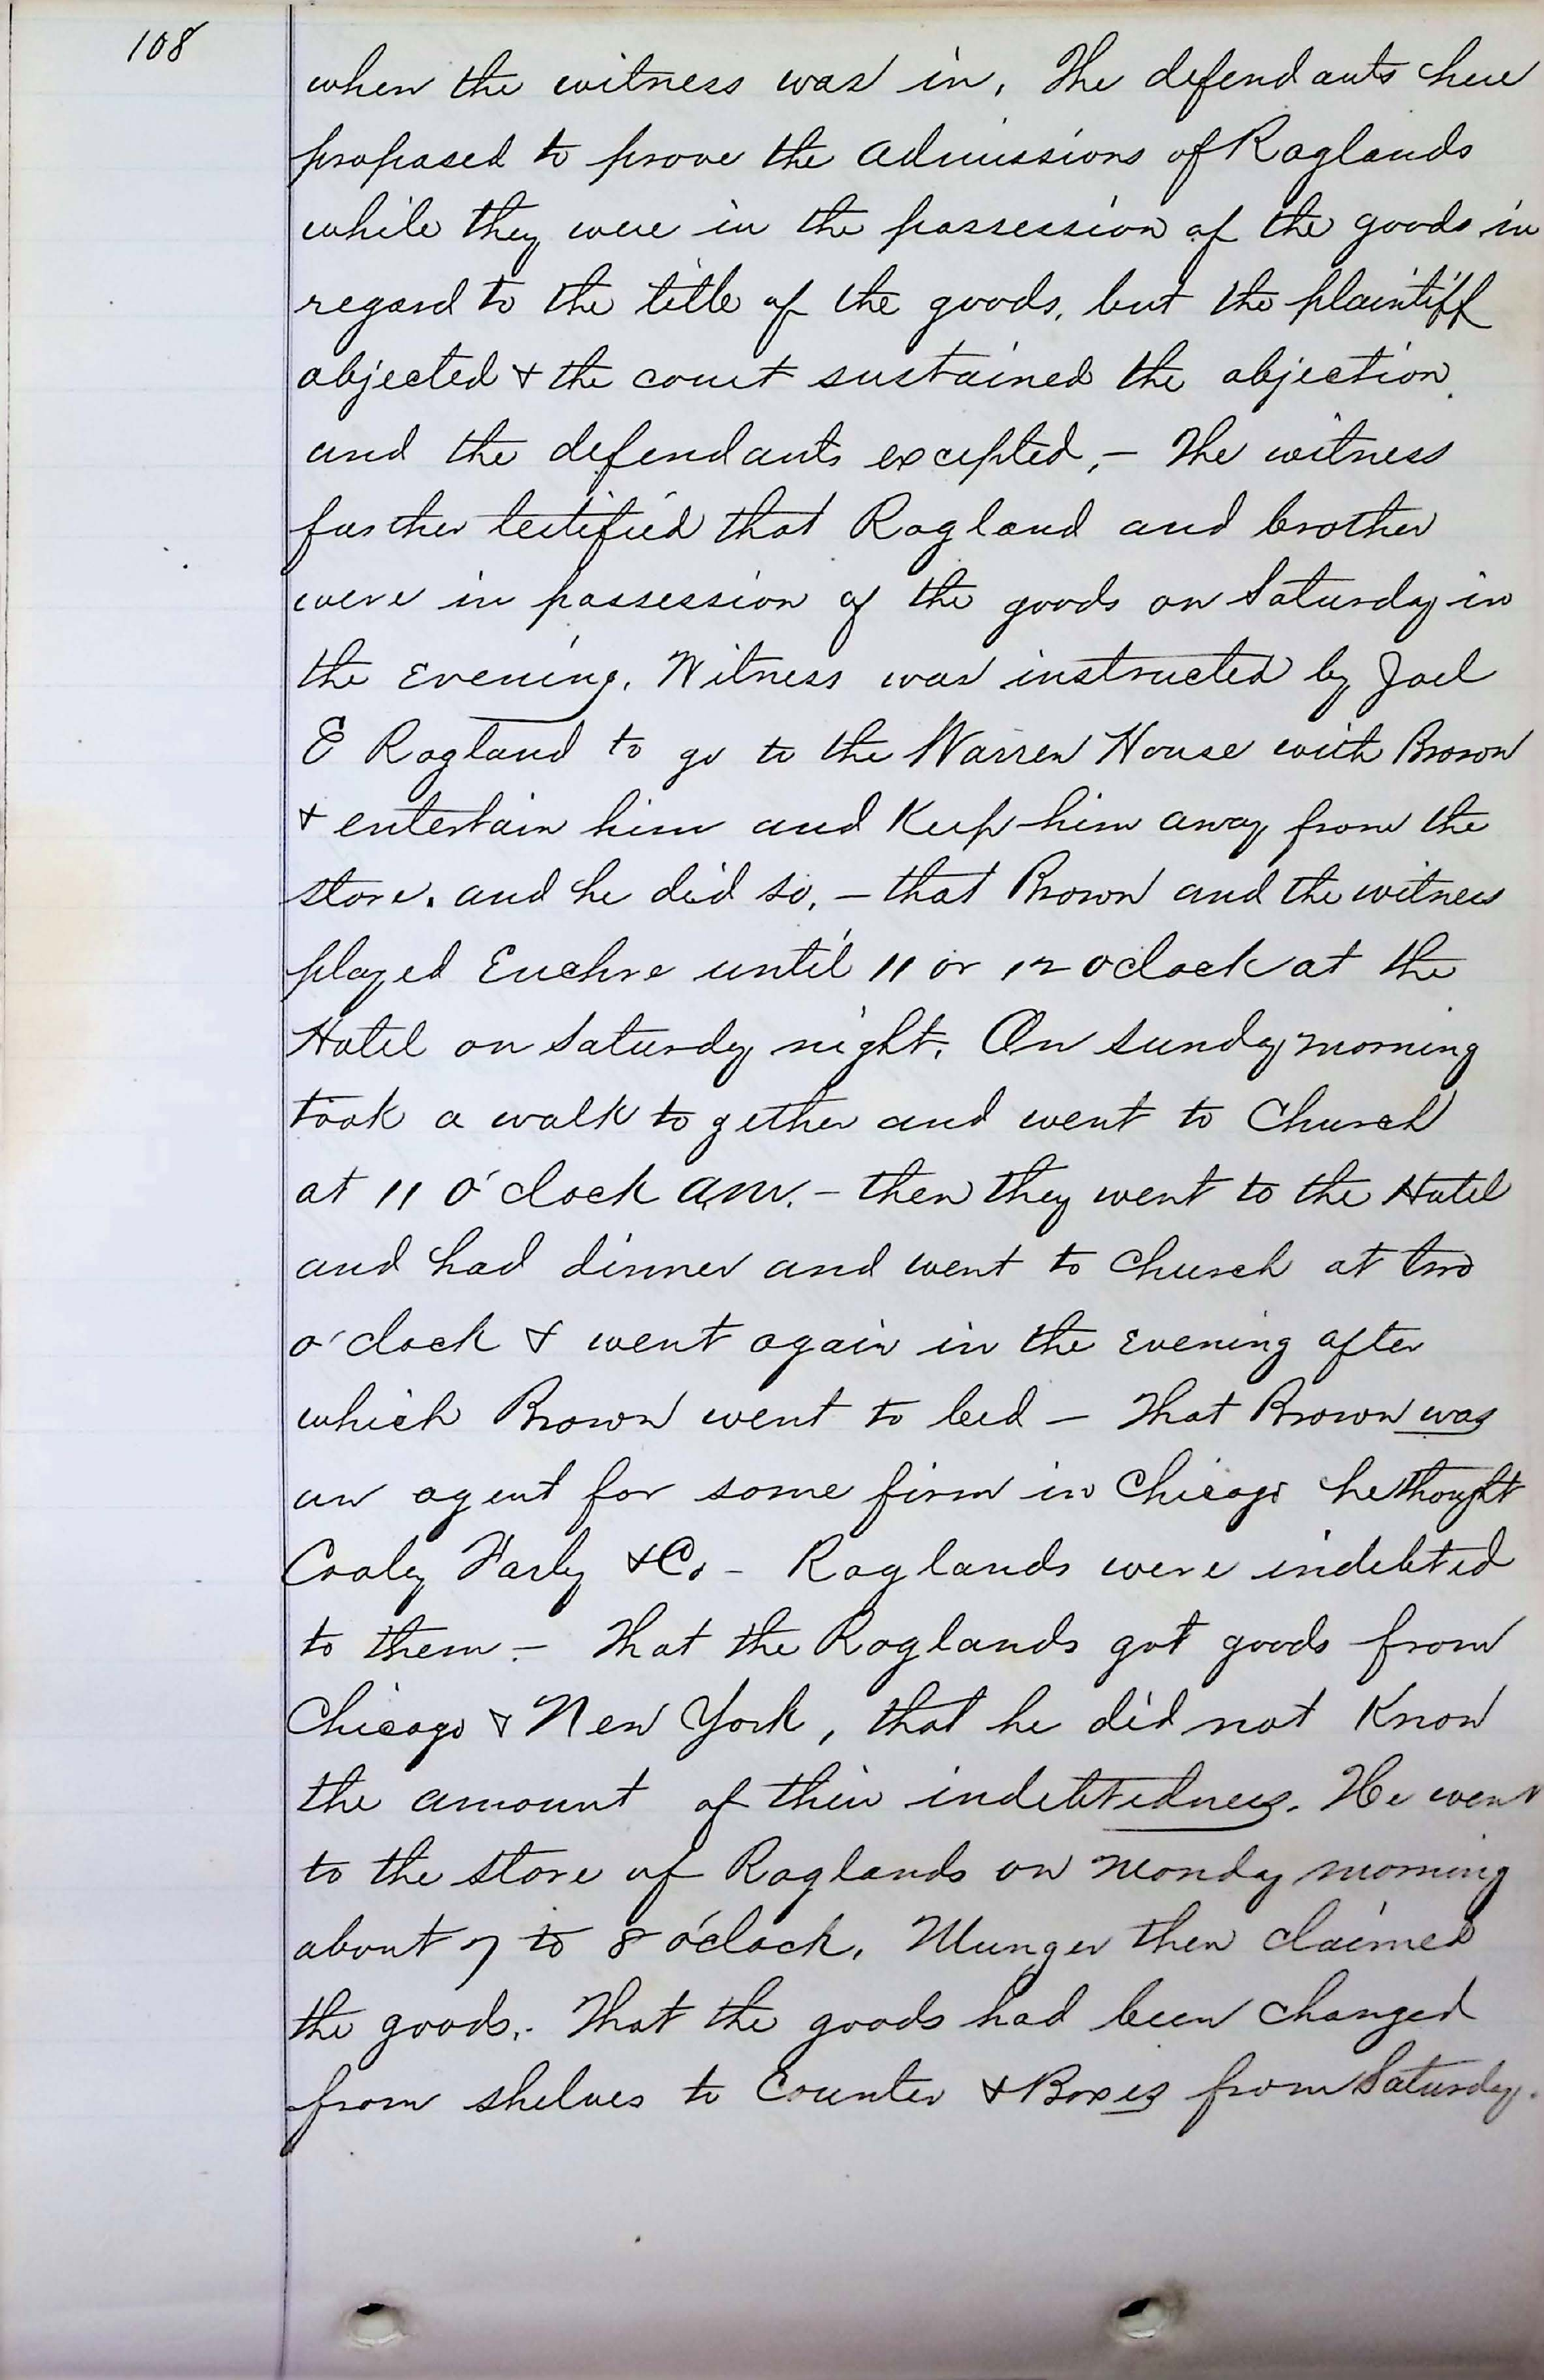 108
when the witness was in. The defendants here
proposed to prove the admissions of Raglands
while they were in the possession of the goods in
regard to the title of the goods, but the plaintiff
objected & the court sustained the objection.
and the defendants excepted, – The witness
further testified that Ragland and brother
were in possession of the goods on Saturday in
the Evening. Witness was instructed by Joel
E Ragland to go to the Warren House with Brown
& entertain him and Keep him away from the
store. and he did so, – that Brown and the witness
played Euchre until 11 or 12 oclock at the
Hotel on Saturday night. On Sunday morning
took a walk to gether and went to Church
at 11 o'clock a.m. – then they went to the Hotel
and had dinner and went to church at two
o'clock & went again in the Evening after
which Brown went to bed – That Brown was
an agent for some firm in Chicago he thought
Cooley Farly & Co – Raglands were indebted
to them – That the Raglands got goods from
Chicago & New York, that he did not Know
the amount of their indebtedness. He went
to the store of Raglands on Monday morning
about 7 to 8 o'clock. Munger then claimed
the goods. That the goods had been changed
from shelves to Counter & Boxes from Saturday.